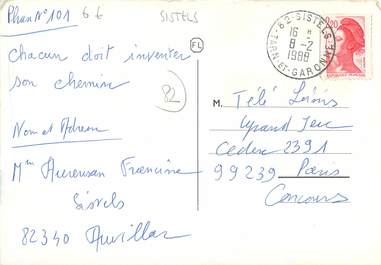 Phan N° 101 6 6
SISTELS
Chacun doit inventer
son chemin
82
FL
Nom et Adresse
Mme Francine
Sistels
82340 Auvillar
82 - SISTELS
16 H
8 - 2
1988
TARN-ET-GARONNE
2,20
M. Télé Loisirs
Grand Jeu
Cedex 2391
99239 Paris
Concours